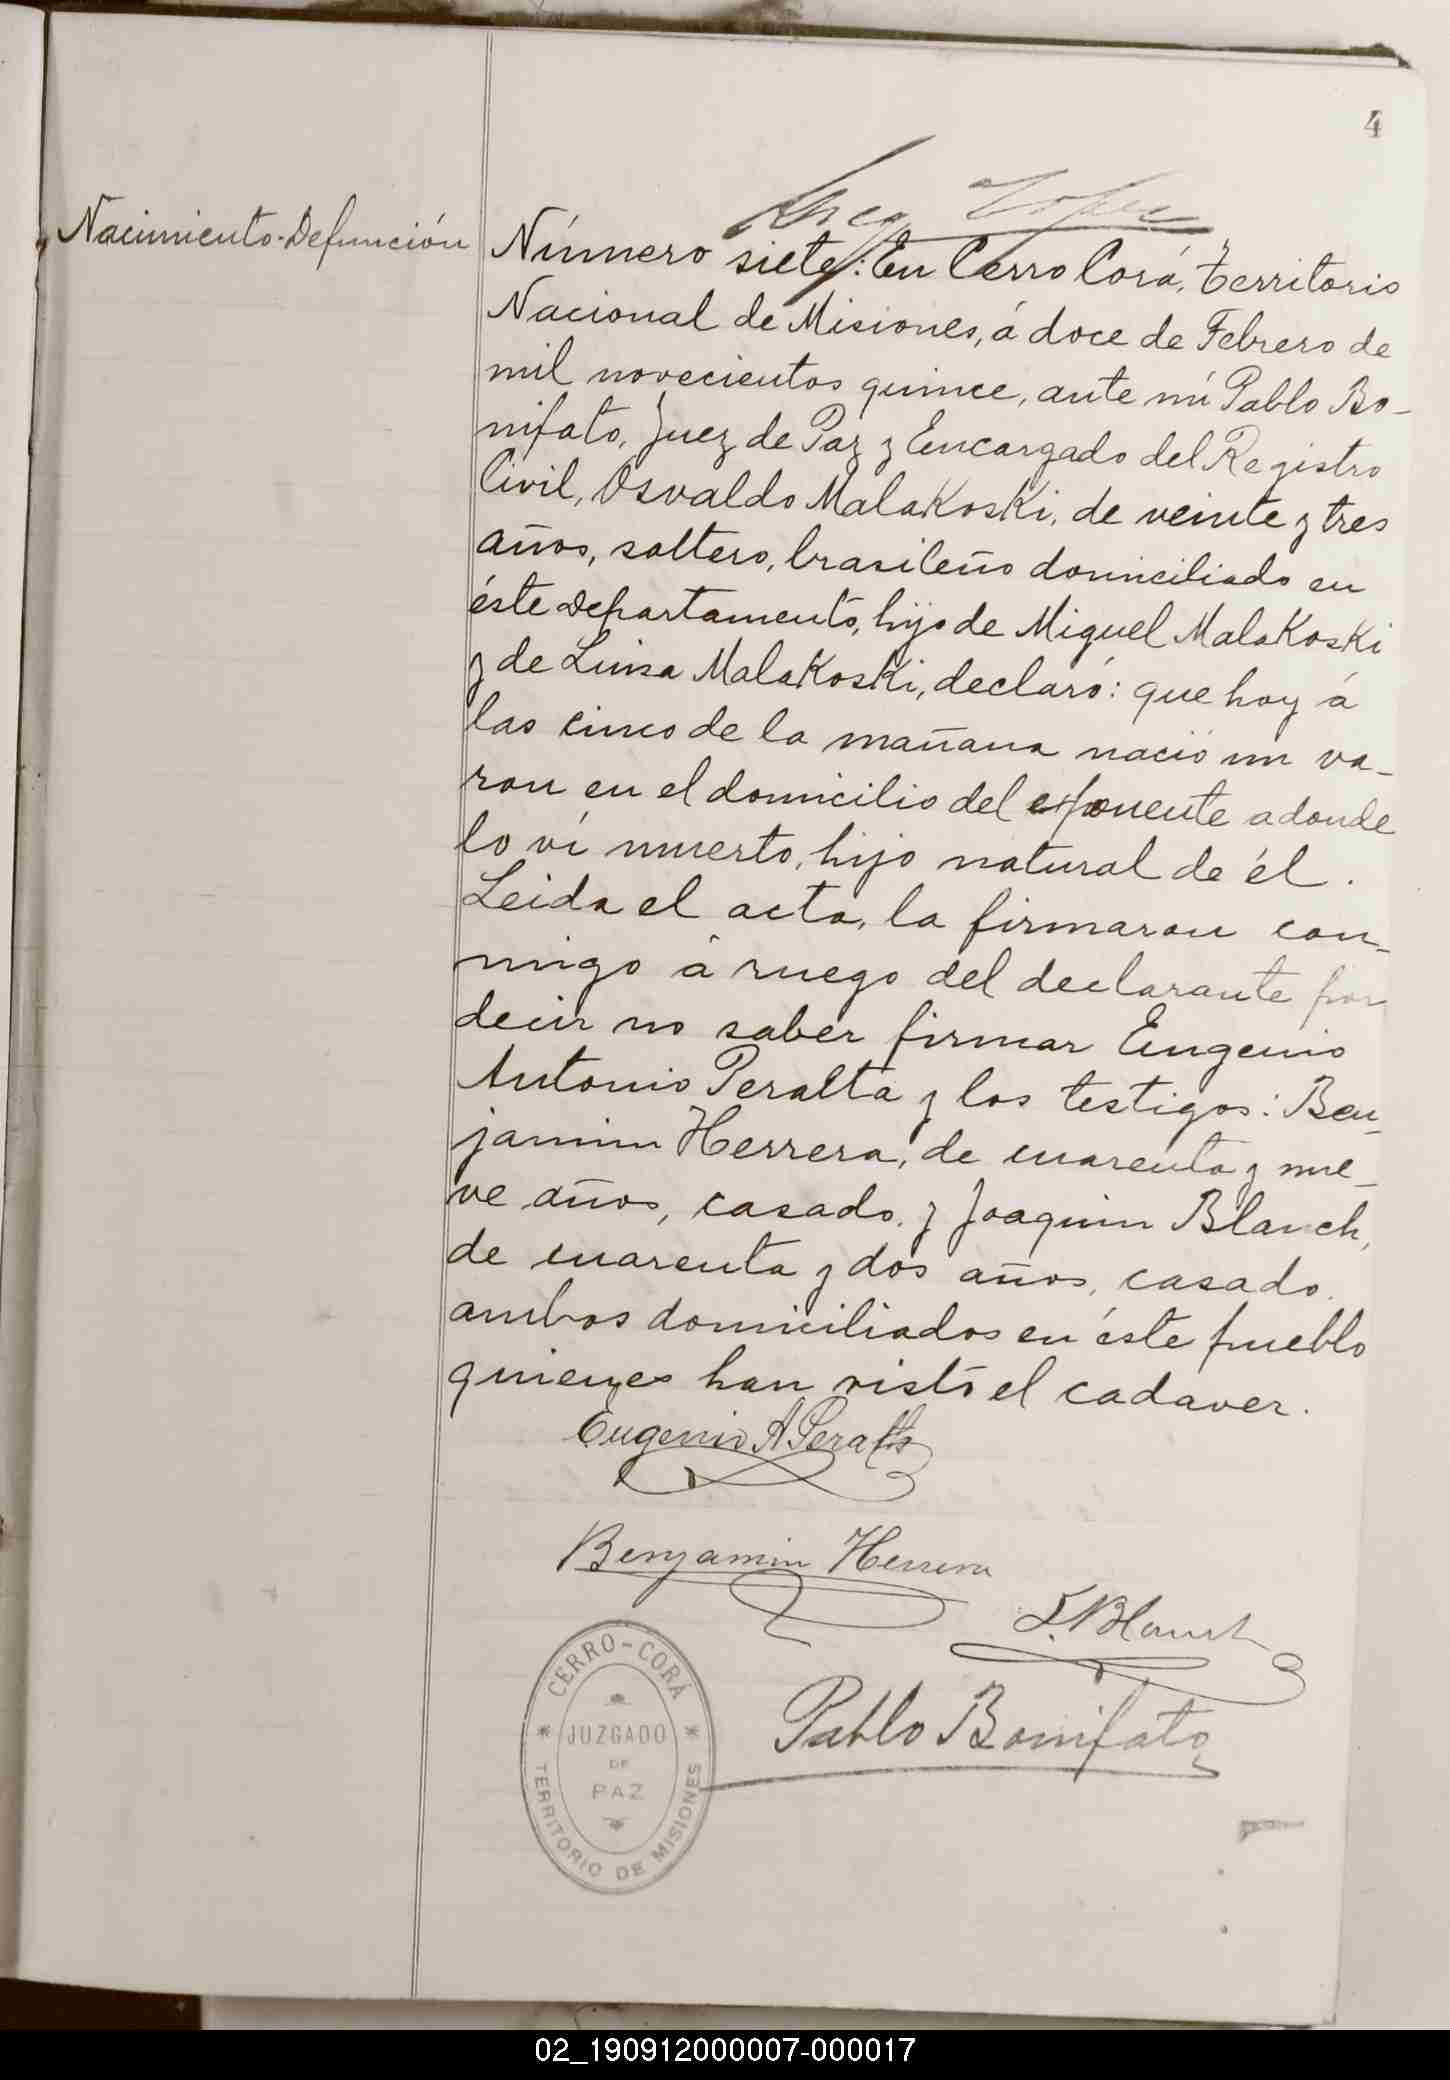 4
Nacimiento-Defunción
Número siete: En Cerro Corá, Territorio
Nacional de Misiones, á doce de Febrero de
mil novecientos quince, ante mi Pablo Bo-
nifato, Juez de Paz y Encargado del Registro
Civil, Osvaldo MalaKosKi, de veinte y tres
años, soltero, brasileño domiciliado en
éste Departamento, hijo de Miguel MalaKosKi
y de Luisa MalaKosKi, declaró: que hoy á
las cinco de la mañana nació un va-
ron en el domicilio del esponente adonde
lo ví muerto, hijo natural de él.
Leida el acta, la firmaron con-
migo á ruego del declarante por
decir no saber firmar Eugenio
Antonio Peralta y los testigos: Ben-
jamin Herrera, de cuarenta y nue-
ve años, casado, y Joaquin Blanch,
de cuarenta y dos años, casado.
ambos domiciliados en éste pueblo
quienes han visto el cadaver.
Eugenio A Peralta
Benjamin Herrera
J. Blanch
Pablo Bonifato
CERRO-CORÁ
JUZGADO
DE
PAZ
TERRITORIO DE MISIONES
02_190912000007-000017